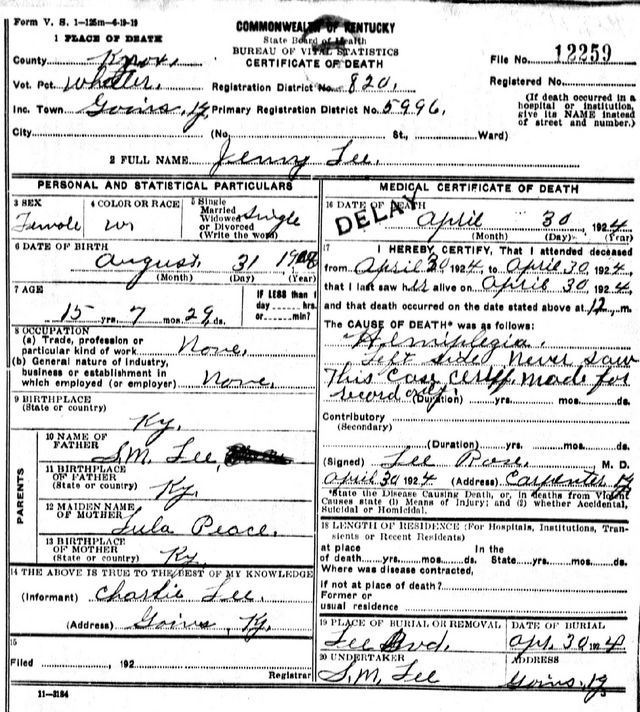 Form V. S. 1-125m-6-19-19
COMMONWEALTH OF KENTUCKY
State Board of Health
BUREAU OF VITAL STATISTICS
CERTIFICATE OF DEATH
1 PLACE OF DEATH
County Knox
File No. 12259
Vot. Pct.
Registration District No. 820
Registered No.
Inc. Town Goins, Ky Primary Registration District No. 5996
(If death occurred in a hospital or institution, give its NAME instead of street and number.)
City (No. St., Ward)
2 FULL NAME Jenny Lee
PERSONAL AND STATISTICAL PARTICULARS
3 SEX
Female
4 COLOR OR RACE
W
5 Single
Married
Widowed
or Divorced
(Write the word)
Single
6 DATE OF BIRTH
August 31 1908
(Month) (Day) (Year)
7 AGE
15 yrs. 7 mos. 29 ds.
IF LESS than 1
day hrs.
or min.?
8 OCCUPATION
(a) Trade, profession or
particular kind of work None
(b) General nature of industry,
business or establishment in
which employed (or employer) None
9 BIRTHPLACE
(State or country)
Ky.
PARENTS
10 NAME OF
FATHER S.M. Lee
11 BIRTHPLACE
OF FATHER
(State or country) Ky.
12 MAIDEN NAME
OF MOTHER Lula Peace
13 BIRTHPLACE
OF MOTHER
(State or country) Ky
14 THE ABOVE IS TRUE TO THE BEST OF MY KNOWLEDGE
(Informant) Charlie Lee
(Address) Goins Ky.
15
Filed , 192
Registrar
11-3184
MEDICAL CERTIFICATE OF DEATH
16 DATE OF DEATH
DELAY
April 30, 1924
(Month) (Day) (Year)
17
I HEREBY CERTIFY, That I attended deceased
from April 30 1924, to April 30, 1924
that I last saw her alive on April 30, 1924
and that death occurred on the date stated above at 12 m.
The CAUSE OF DEATH* was as follows:
Hemiplegia
Left side Never saw
This Case Certif. made for
record only
(Duration) yrs. mos. ds.
Contributory
(Secondary)
(Duration) yrs. mos. ds.
(Signed) Lee Rose M. D.
April 30 1924 (Address) Carpenter Ky
*State the Disease Causing Death, or, in deaths from Violent
Causes state (1) Means of Injury; and (2) whether Accidental,
Suicidal or Homicidal.
18 LENGTH OF RESIDENCE (For Hospitals, Institutions, Tran-
sients or Recent Residents)
at place In the
of death yrs. mos. ds. State yrs. mos. ds.
Where was disease contracted,
if not at place of death?
Former or
usual residence
19 PLACE OF BURIAL OR REMOVAL
Lee
DATE OF BURIAL
Apr. 30 1924
20 UNDERTAKER
S.M. Lee
ADDRESS
Goins Ky